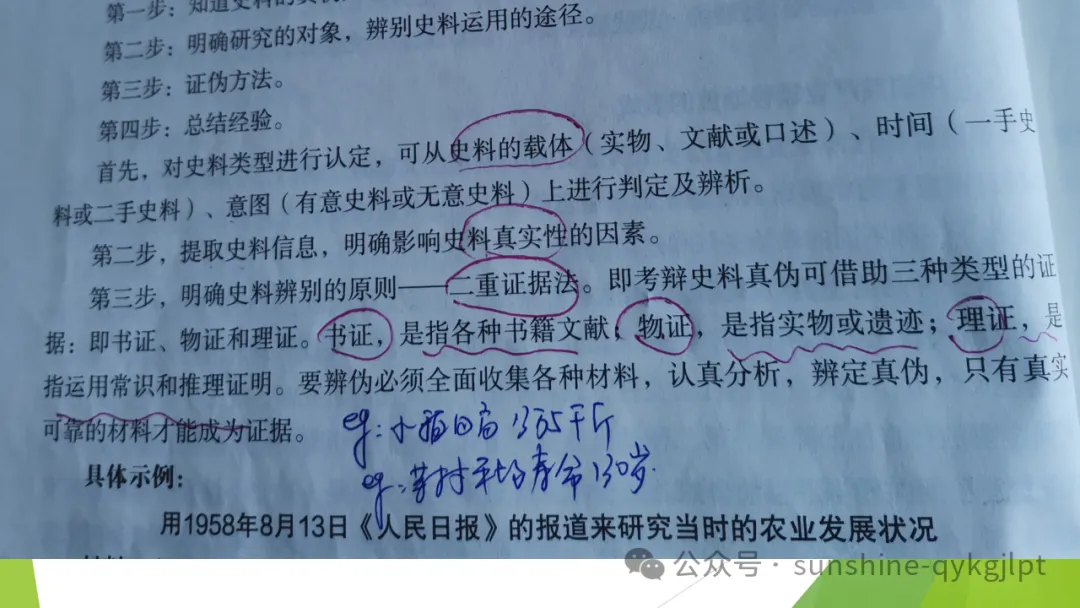 第一步：知道史料的真
第二步：明确研究的对象，辨别史料运用的途径。
第三步：证伪方法。
第四步：总结经验。
首先，对史料类型进行认定，可从史料的载体（实物、文献或口述）、时间（一手史
料或二手史料）、意图（有意史料或无意史料）上进行判定及辨析。
第二步，提取史料信息，明确影响史料真实性的因素。
第三步，明确史料辨别的原则——二重证据法。即考辩史料真伪可借助三种类型的证
据：即书证、物证和理证。书证，是指各种书籍文献；物证，是指实物或遗迹；理证，是
指运用常识和推理证明。要辨伪必须全面收集各种材料，认真分析，辨定真伪，只有真实
可靠的材料才能成为证据。
eg：小 千斤
eg：村平均寿命130岁
具体示例：
用1958年8月13日《人民日报》的报道来研究当时的农业发展状况
公众号 · sunshine-qykgjlpt